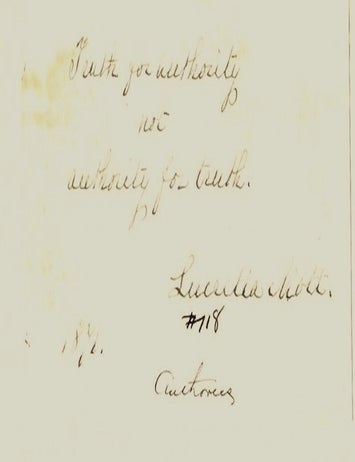 Truth for authority
not
authority for truth.
Lucretia Mott.
#718
Authoress